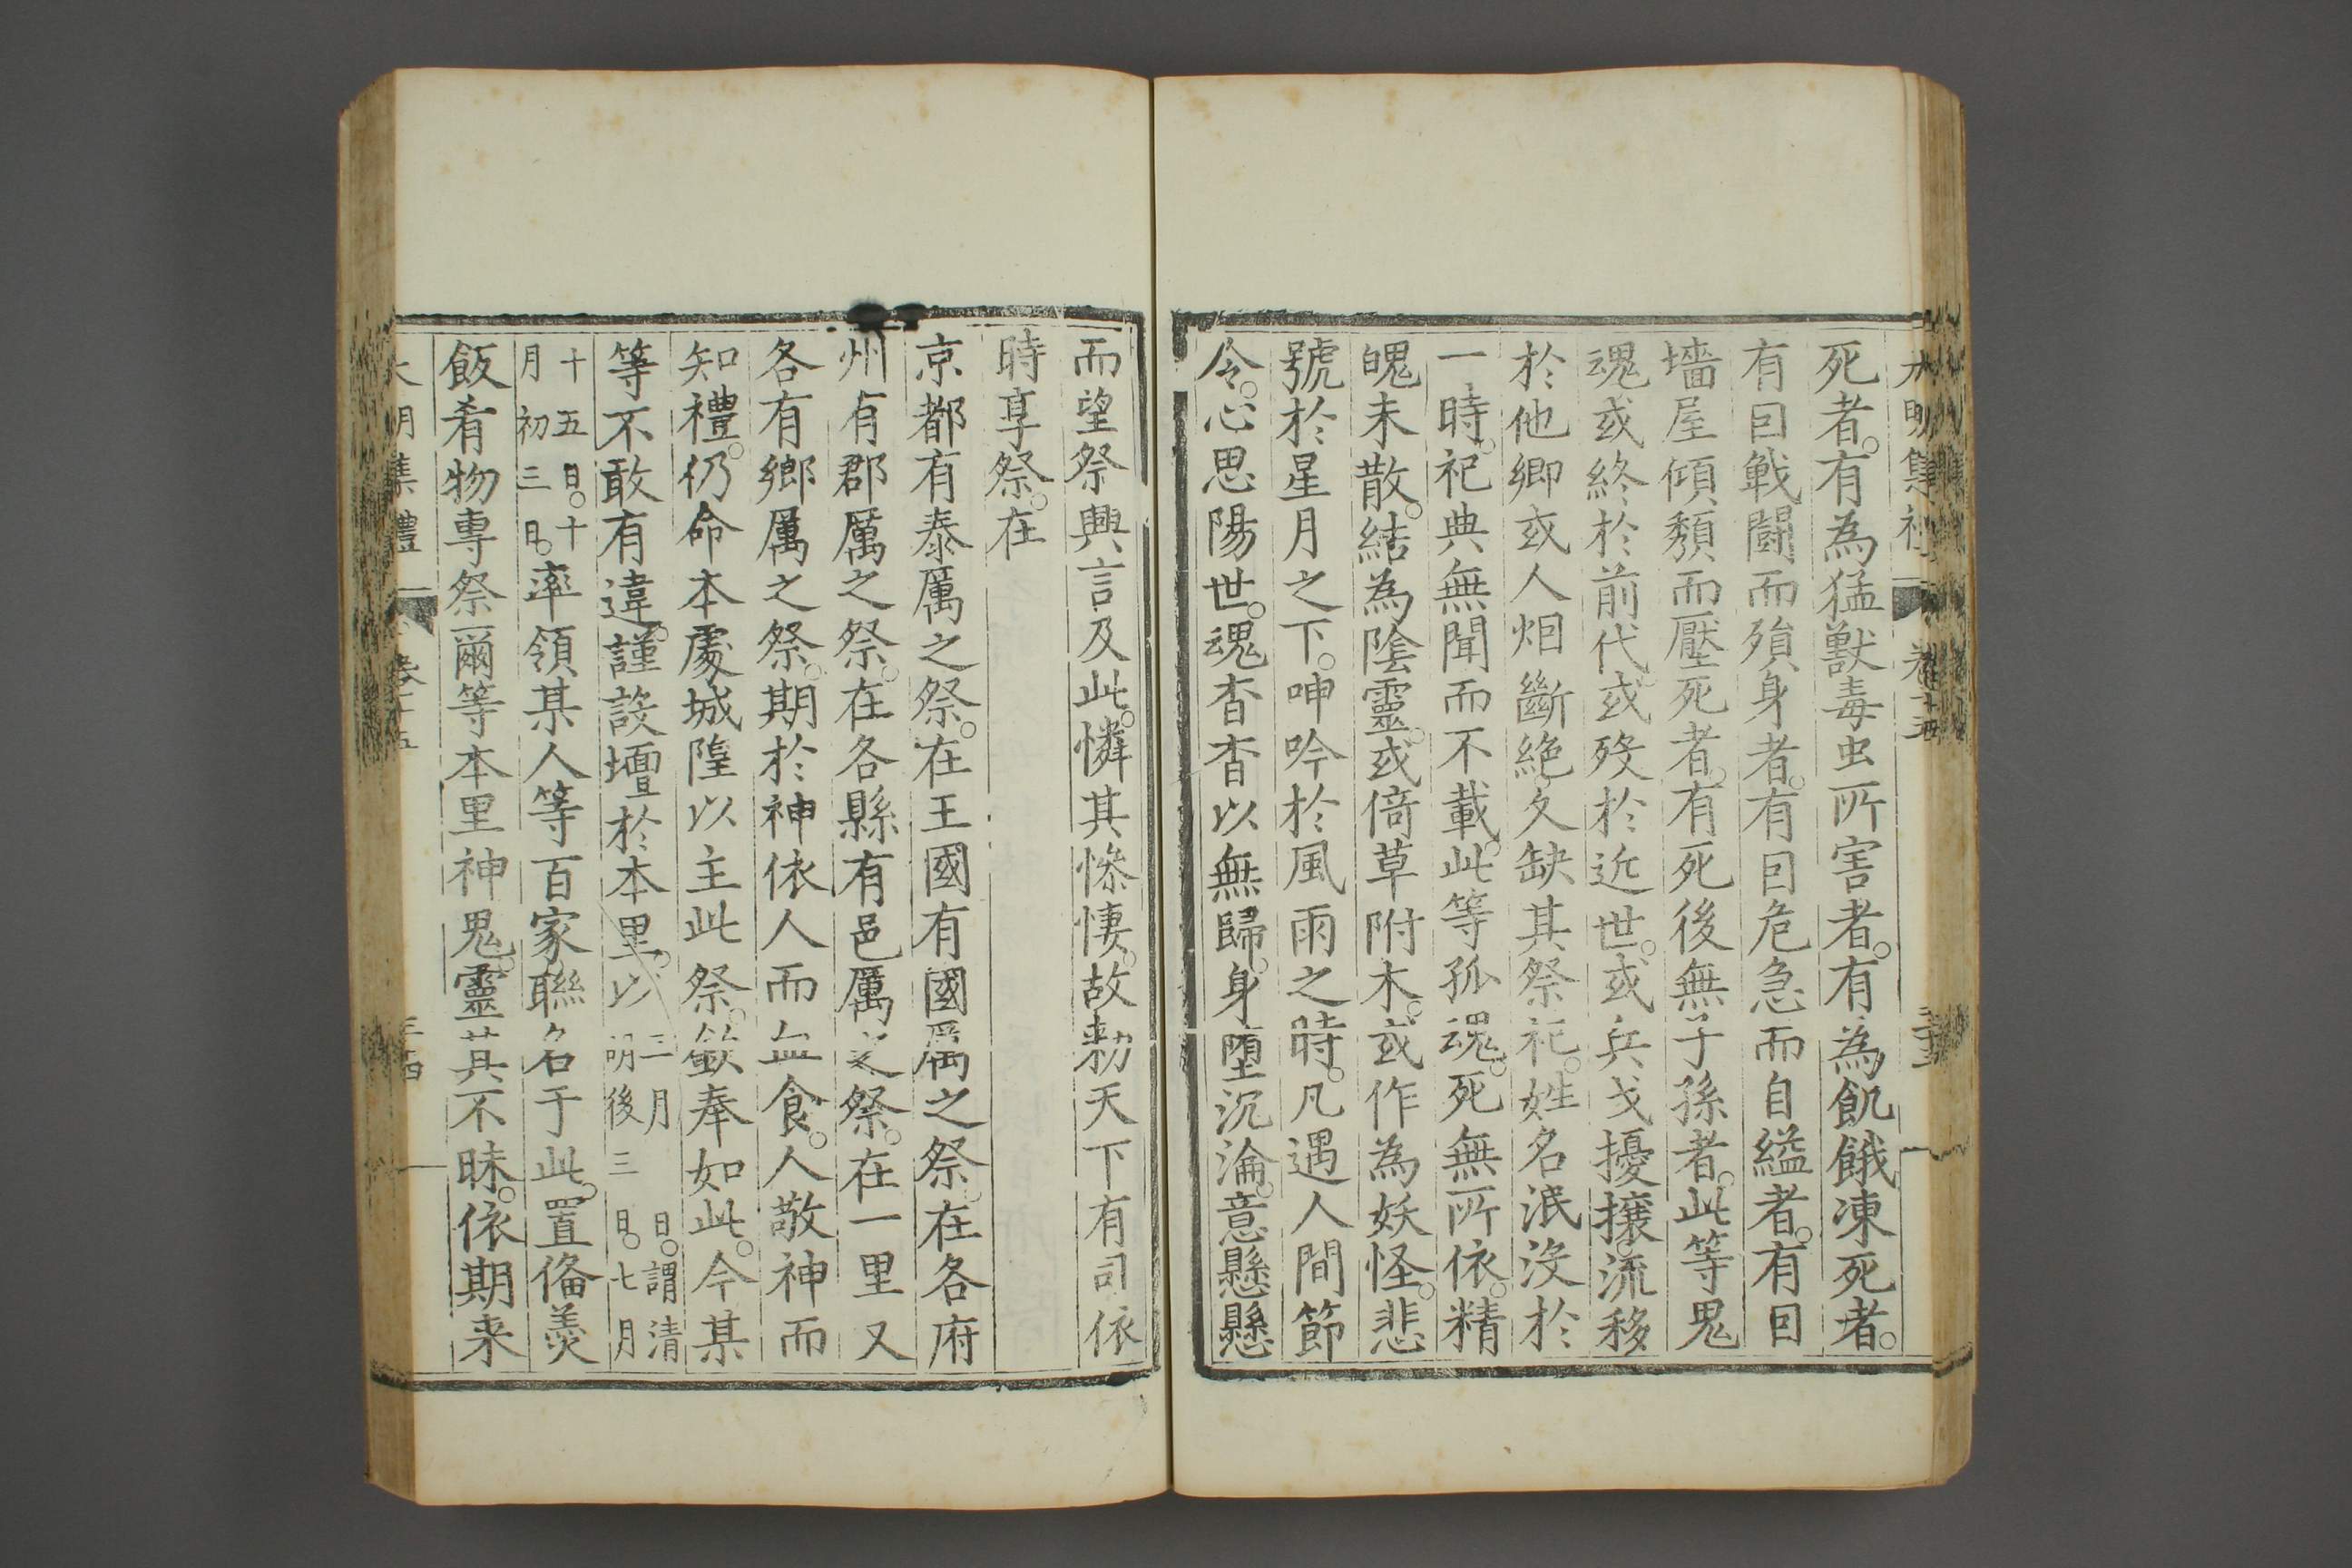 死者。有為猛獸毒虫所害者。有為飢餓凍死者。
有因戰鬪而殞身者。有因危急而自縊者。有因
墻屋傾頹而壓死者。有死後無子孫者。此等鬼
魂或終於前代。或歿於近世。或兵戈擾攘。流移
於他鄉或人烟斷絕。久缺其祭祀。姓名泯沒於
一時。祀典無聞而不載。此等孤魂。死無所依。精
魄未散。結為陰靈。或倚草附木。或作為妖怪。悲
號於星月之下。呻吟於風雨之時。凡遇人間節
令。心思陽世。魂杳杳以無歸。身墮沉淪。意懸懸
而望祭興言及此。憐其慘悽。故勑天下有司依
時享祭。在
京都有泰厲之祭。在王國有國厲之祭。在各府
州有郡厲之祭。在各縣有邑厲之祭。在一里又
各有鄉厲之祭。期於神依人而血食。人敬神而
知禮。仍命本處城隍以主此祭。欽奉如此。今某
等不敢有違。謹設壇於本里。以三月 日。謂清明後三日。七月
十五日。十月初三日。率領某人等百家聯名于此。置備羹
飯肴物專祭爾等本里神鬼。靈其不昧。依期来
大明集禮 卷十五